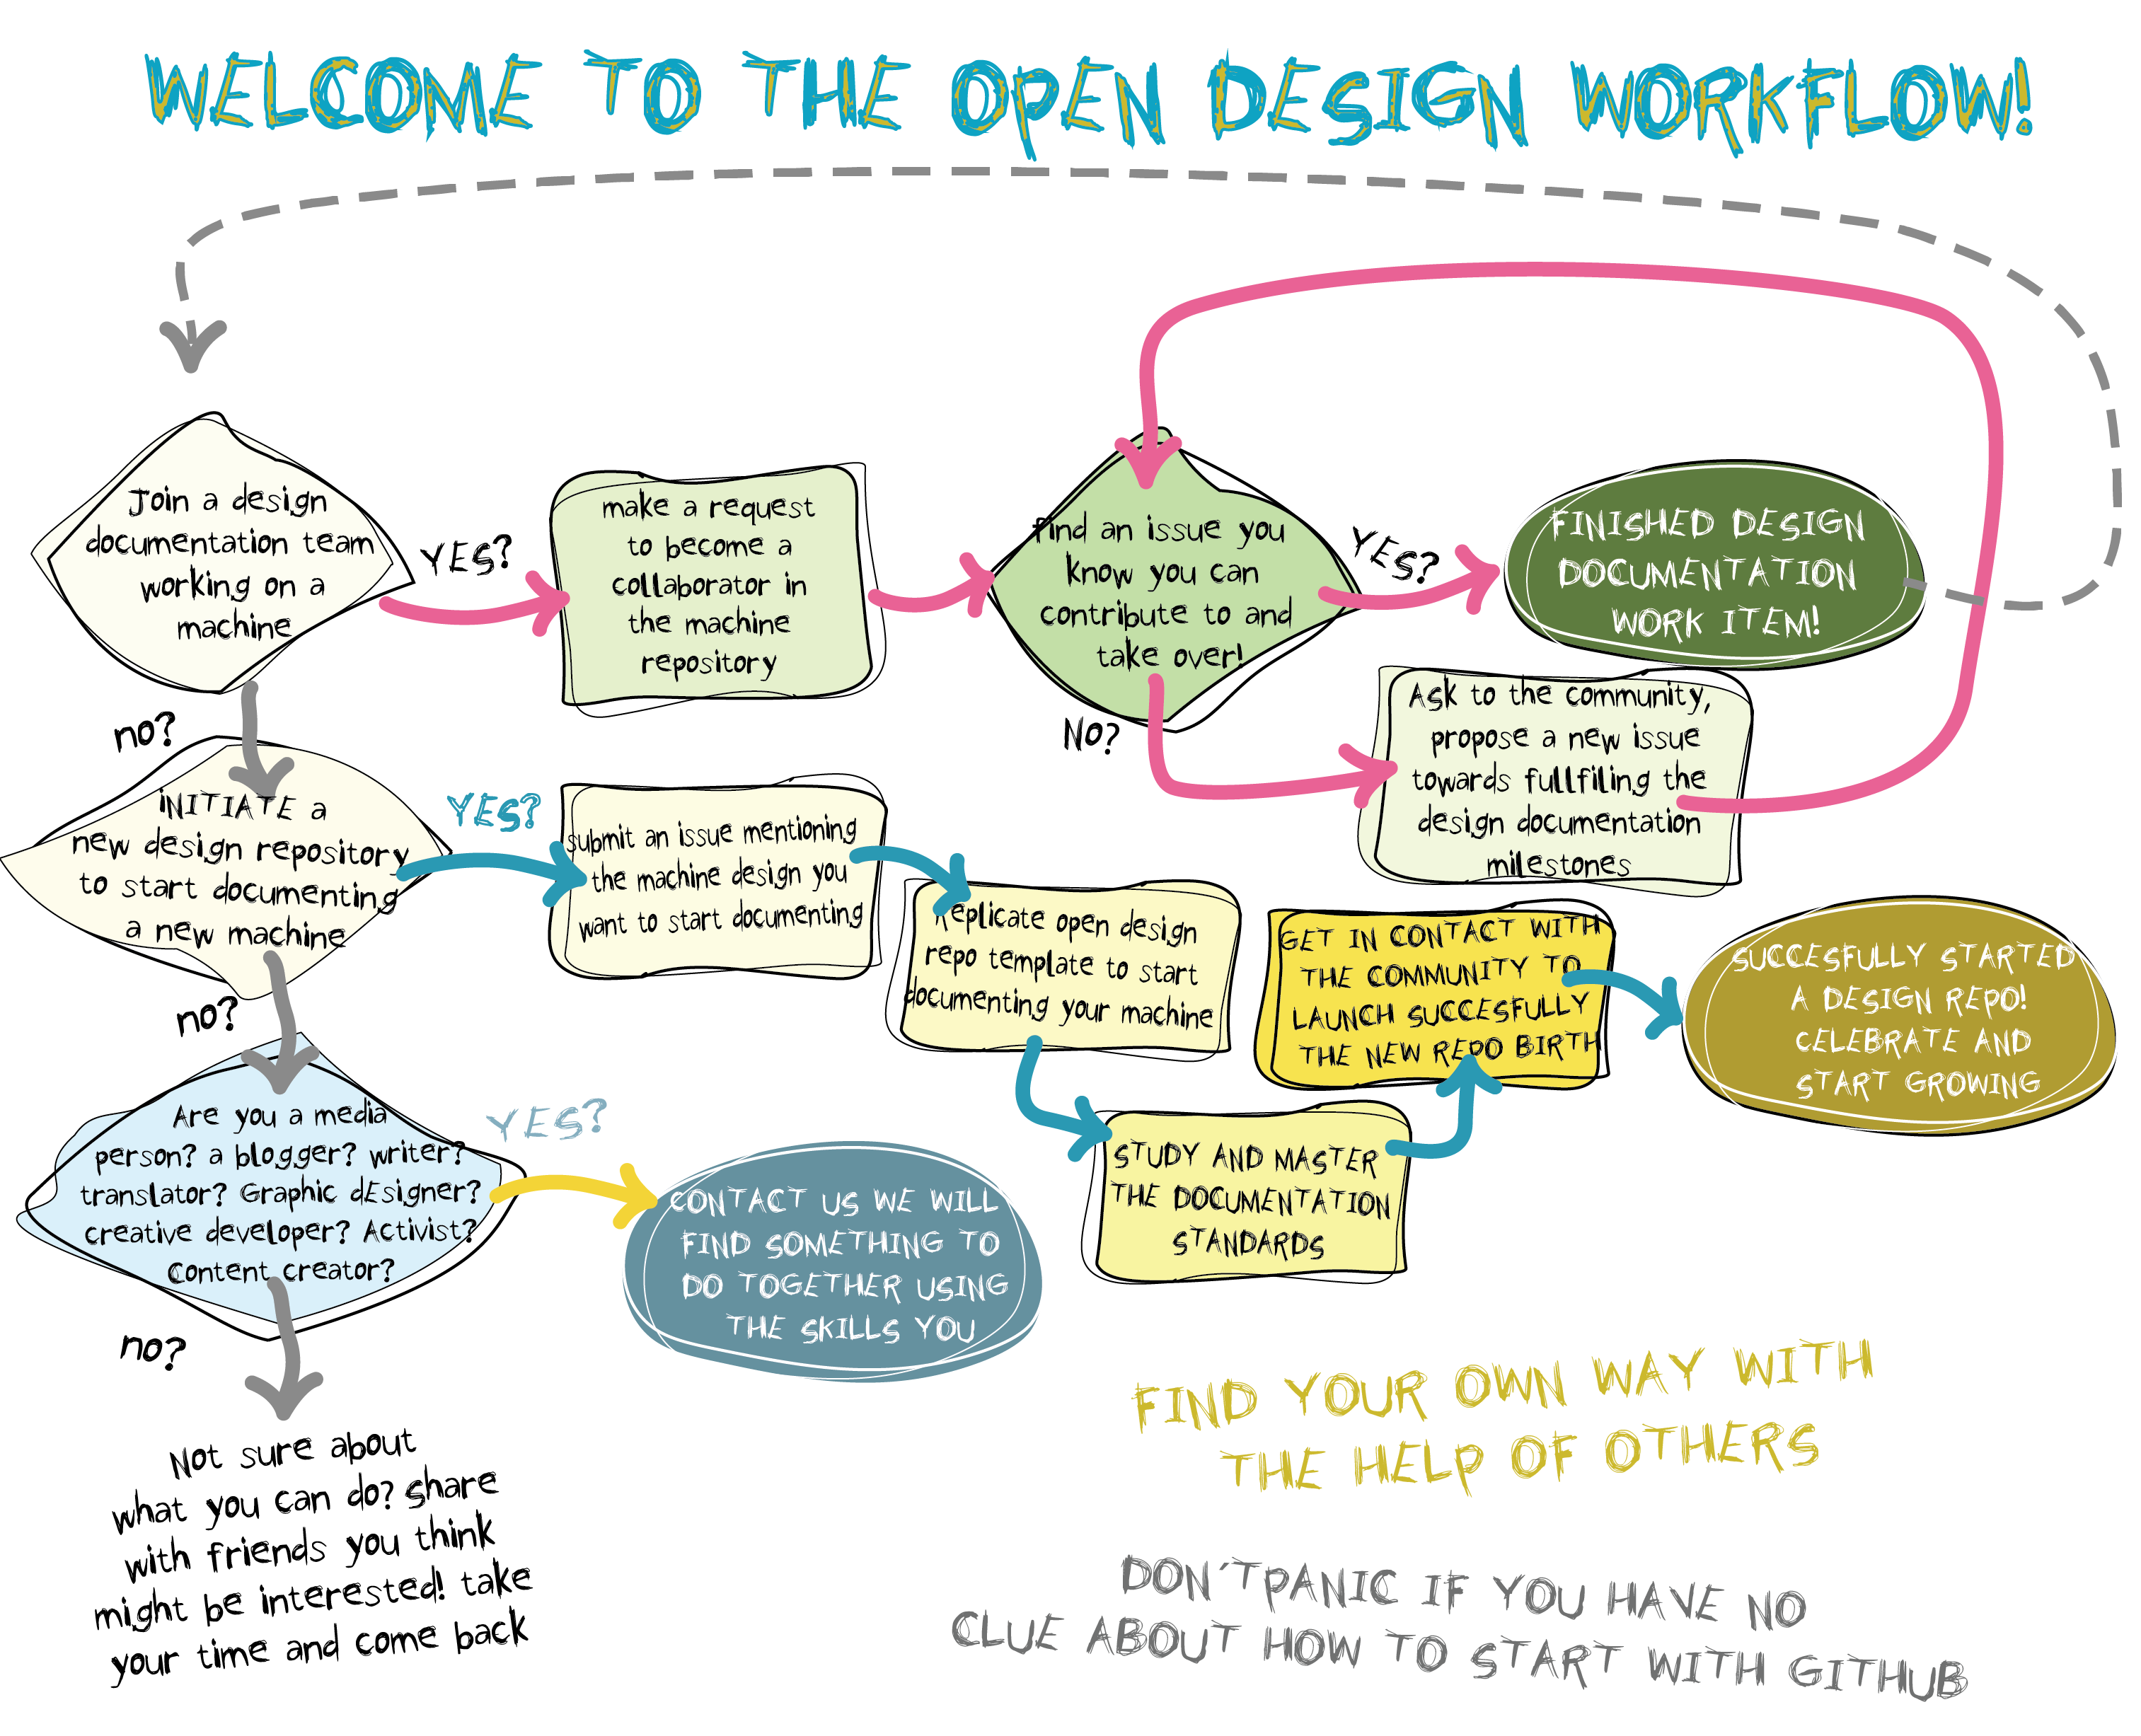 WELCOME TO THE OPEN DESIGN WORKFLOW!
Join a design
documentation team
working on a
machine
YES?
make a request
to become a
collaborator in
the machine
repository
find an issue you
know you can
contribute to and
take over!
YES?
FINISHED DESIGN
DOCUMENTATION
WORK ITEM!
No?
Ask to the community,
propose a new issue
towards fullfiling the
design documentation
milestones
no?
iNITIATE a
new design repository
to start documenting
a new machine
YES?
submit an issue mentioning
the machine design you
want to start documenting
Replicate open design
repo template to start
documenting your machine
STUDY AND MASTER
THE DOCUMENTATION
STANDARDS
GET IN CONTACT WITH
THE COMMUNITY TO
LAUNCH SUCCESFULLY
THE NEW REPO BIRTH
SUCCESFULLY STARTED
A DESIGN REPO!
CELEBRATE AND
START GROWING
no?
Are you a media
person? a blogger? writer?
translator? Graphic dEsigner?
creative developer? Activist?
Content creator?
YES?
CONTACT US WE WILL
FIND SOMETHING TO
DO TOGETHER USING
THE SKILLS YOU
no?
Not sure about
what you can do? share
with friends you think
might be interested! take
your time and come back
FIND YOUR OWN WAY WITH
THE HELP OF OTHERS
DON´TPANIC IF YOU HAVE NO
CLUE ABOUT HOW TO START WITH GITHUB